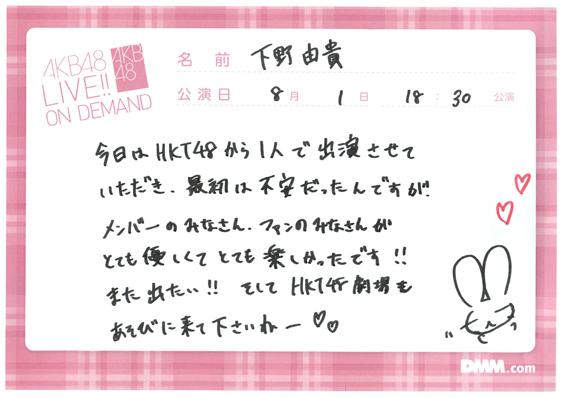 AKB48
LIVE!!
ON DEMAND
AKB
48
名前 下野由貴
公演日 8月 1日 18:30 公演
今日はHKT48から1人で出演させて
いただき、最初は不安だったんですが、
メンバーのみなさん、ファンのみなさんが
とても優しくてとても楽しかったです!!
また出たい!! そして HKT48劇場も
あそびに来て下さいねー♡♡
DMM.com